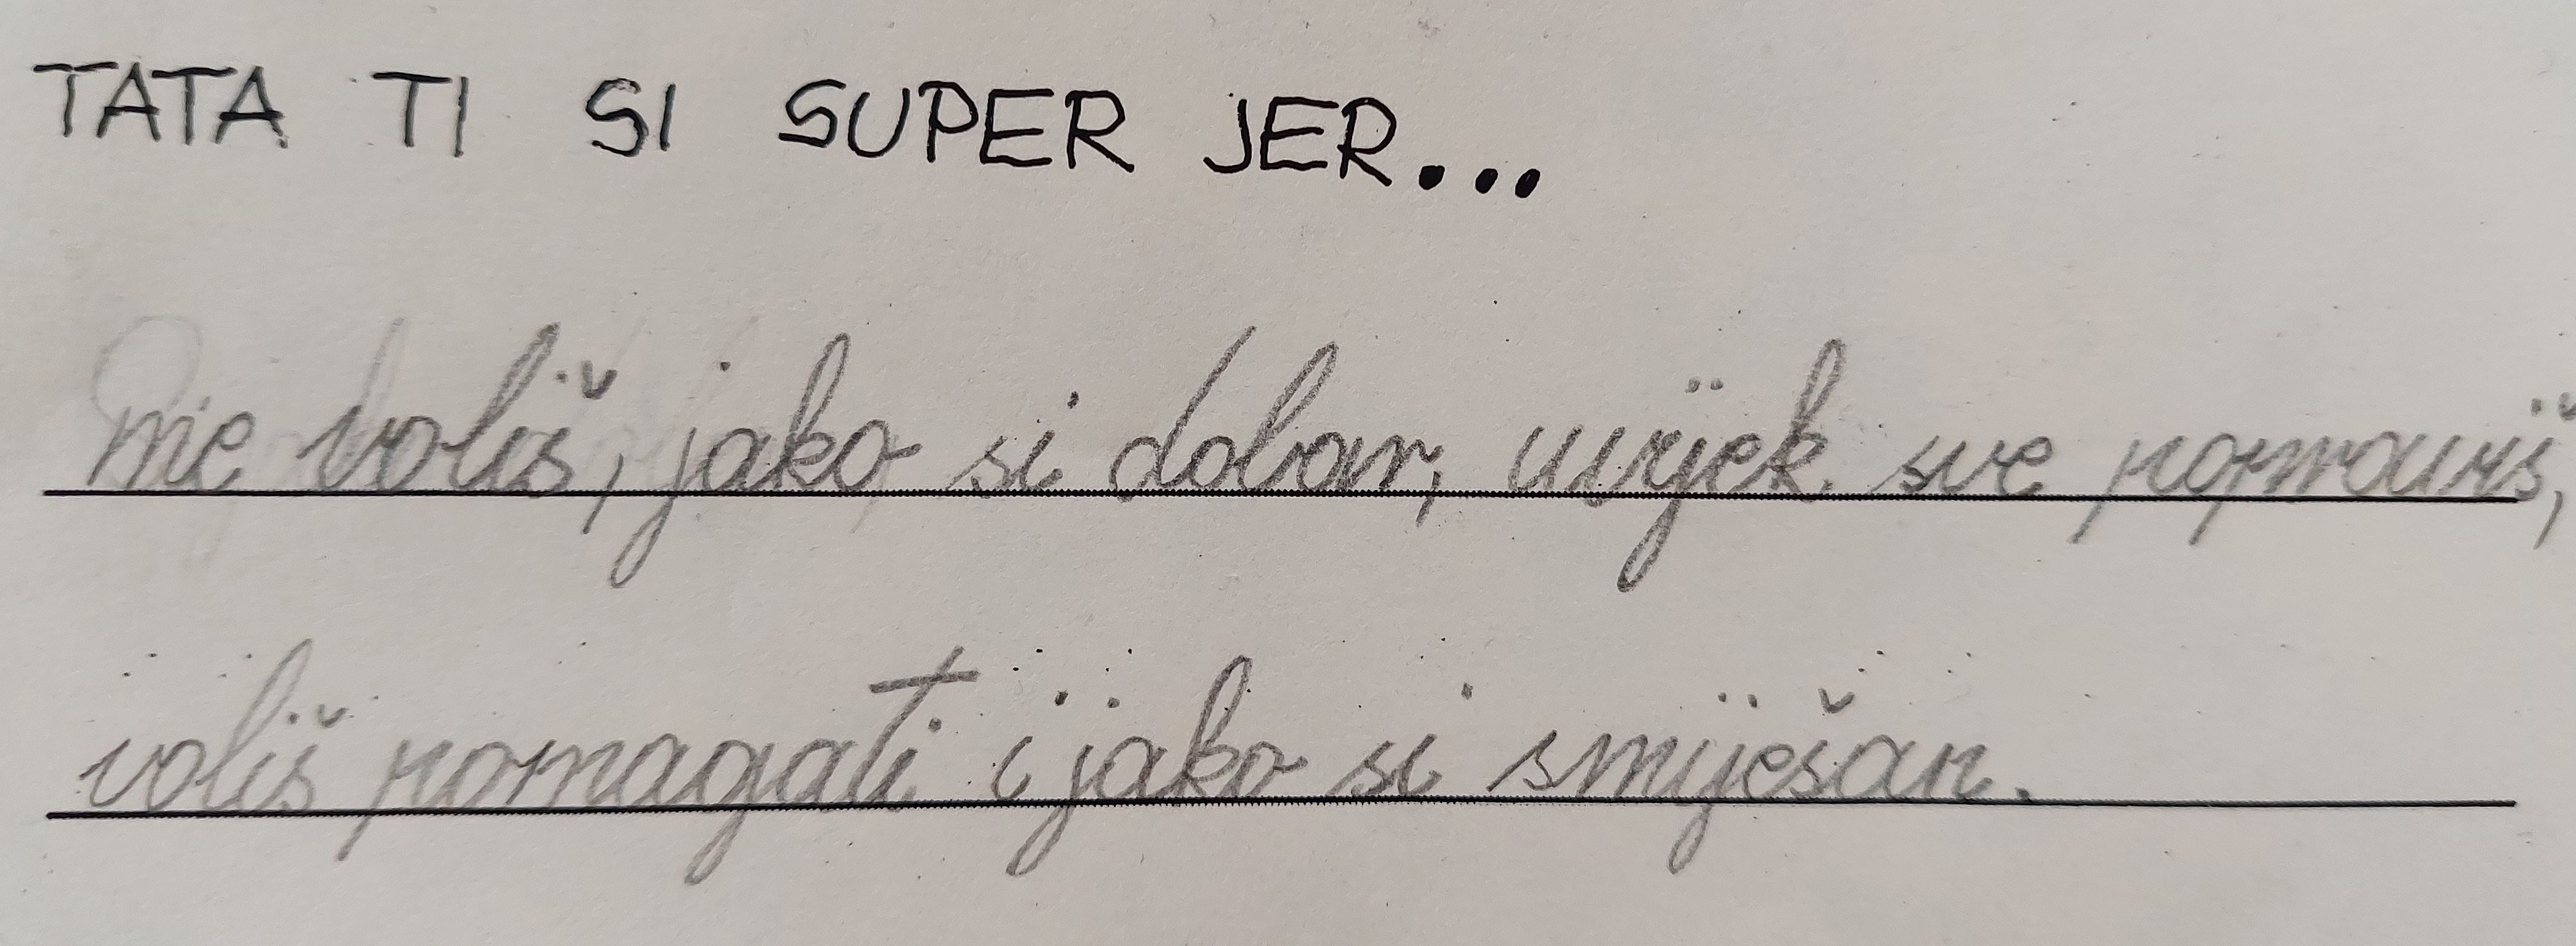 TATA TI SI SUPER JER...
me voliš, jako si dobar, uvijek sve popraviš,
voliš pomagati i jako si smiješan.